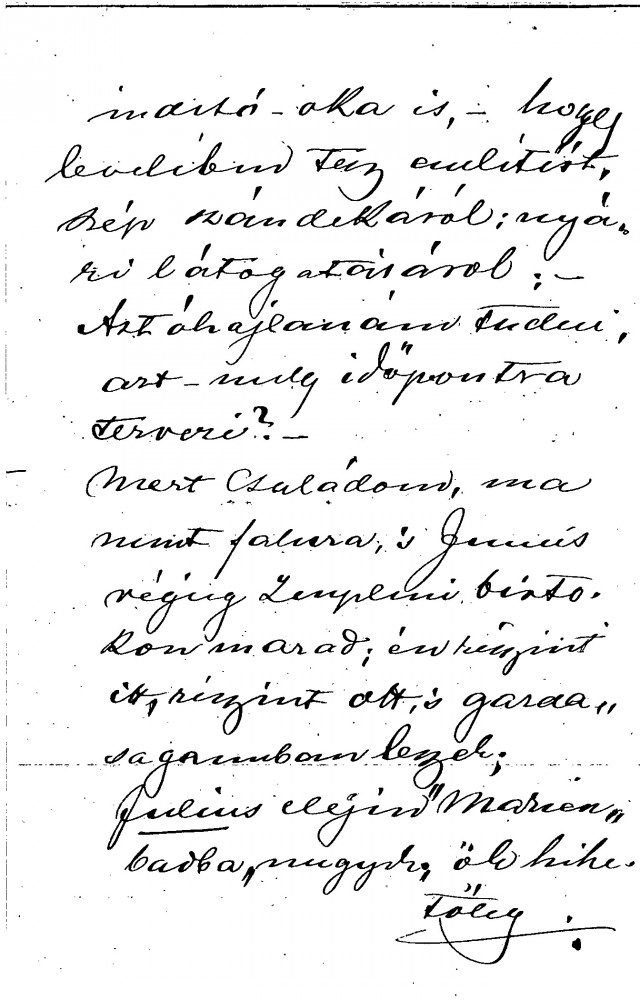 indító - oka is, - hogy
levelében tesz emlitést,
szép szándékáról; nyá„
ri látogatásáról; -
Azt óhajtanám tudni,
azt - mely időpontra
tervezi? -
Mert Családom, ma
ment falura, 's Junius
végeig Zempleni birto-
kon marad; én részint
itt, részint ott, 's gazda„
sagomban leszek;
Julius elején "Marien„
badba„ megyek, ők hihe-
tőleg :